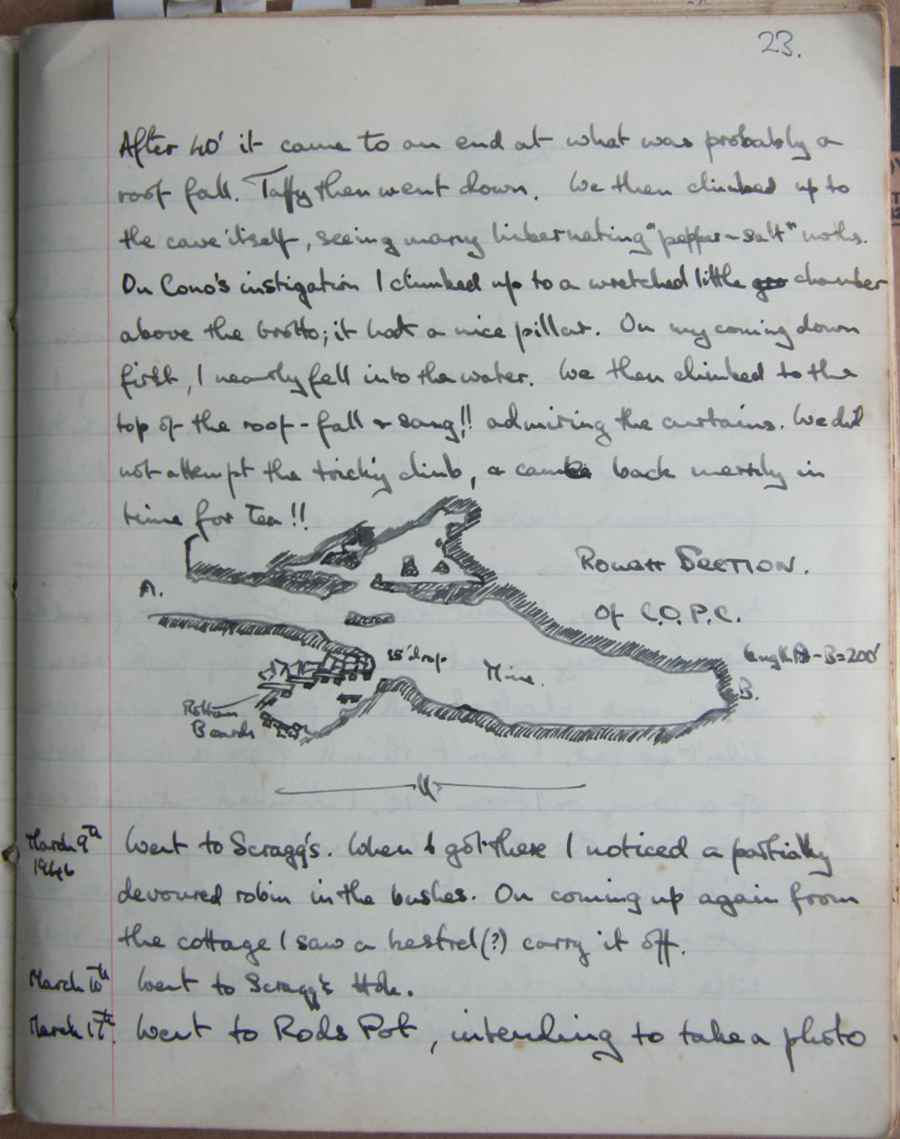 23.
After 40' it came to an end at what was probably a
roof fall. Taffy then went down. We then climbed up to
the cave itself, seeing many hibernating "pepper-salt" moths.
On Cono's instigation I climbed up to a wretched little chamber
above the Grotto; it had a nice pillar. On my coming down
first, I nearly fell into the water. We then climbed to the
top of the roof-fall & sang!! admiring the curtains. We did
not attempt the tricky climb, & came back merrily in
time for Tea!!
ROUGH SECTION.
Of C.O.P.C.
A.
15' drop
Mine.
Length A-B=200'
B.
Rotten
Boards
March 9th Went to Scragg's. When I got there I noticed a partially
1946 devoured robin in the bushes. On coming up again from
the cottage I saw a kestrel(?) carry it off.
March 10th Went to Scragg's Hole.
March 17th. Went to Rods Pot, intending to take a photo